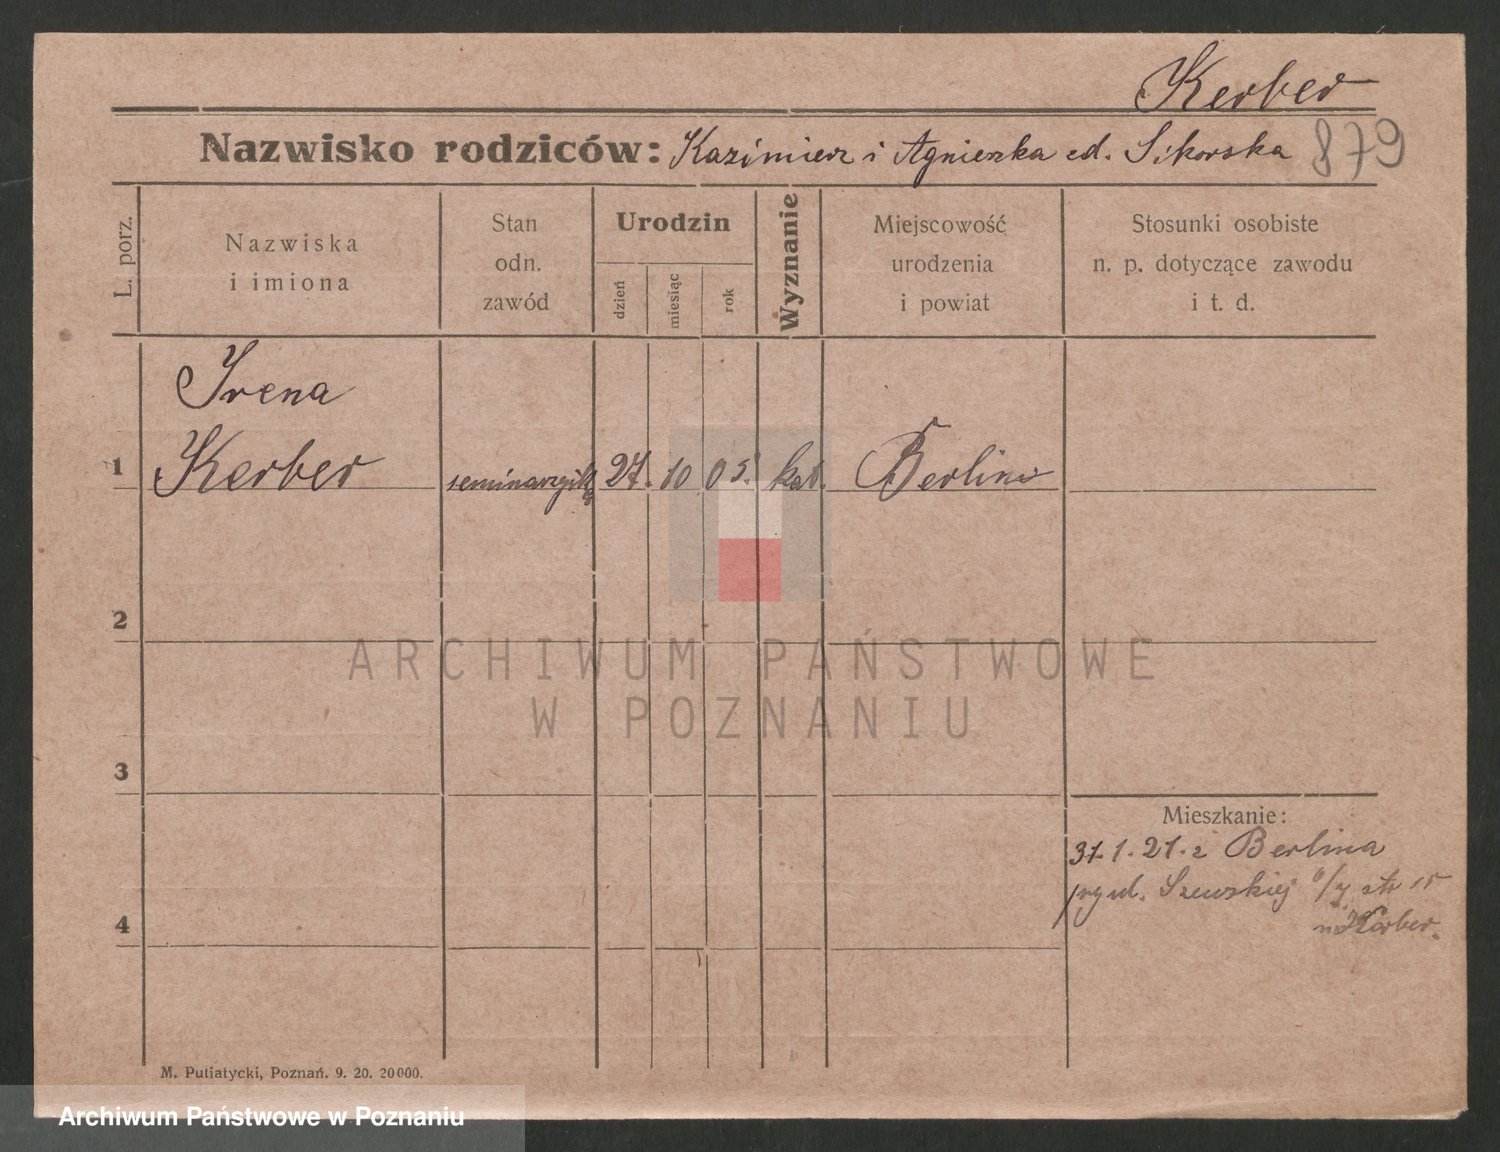 Kerber
Nazwisko rodziców: Kazimierz i Agnieszka zd. Sikorska 879
L. porz.
Nazwiska
i imiona
Stan
odn.
zawód
Urodzin
dzień
miesiąc
rok
Wyznanie
Miejscowość
urodzenia
i powiat
Stosunki osobiste
n. p. dotyczące zawodu
i t. d.
Irena
1 Kerber 27. 10 05. kat. Berlin
2
3
4
Mieszkanie:
31.1.21. z Berlina
Szewskiej
Kerber.
M. Putiatycki, Poznań. 9. 20. 20000.
ARCHIWUM PAŃSTWOWE
W POZNANIU
Archiwum Państwowe w Poznaniu